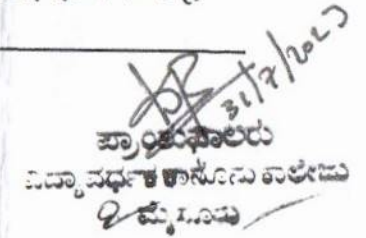 31/7/2023
ಪ್ರಾಂಶುಪಾಲರು
ವಿದ್ಯಾವರ್ಧಕ ಕಾನೂನು ಕಾಲೇಜು
ಮೈಸೂರು